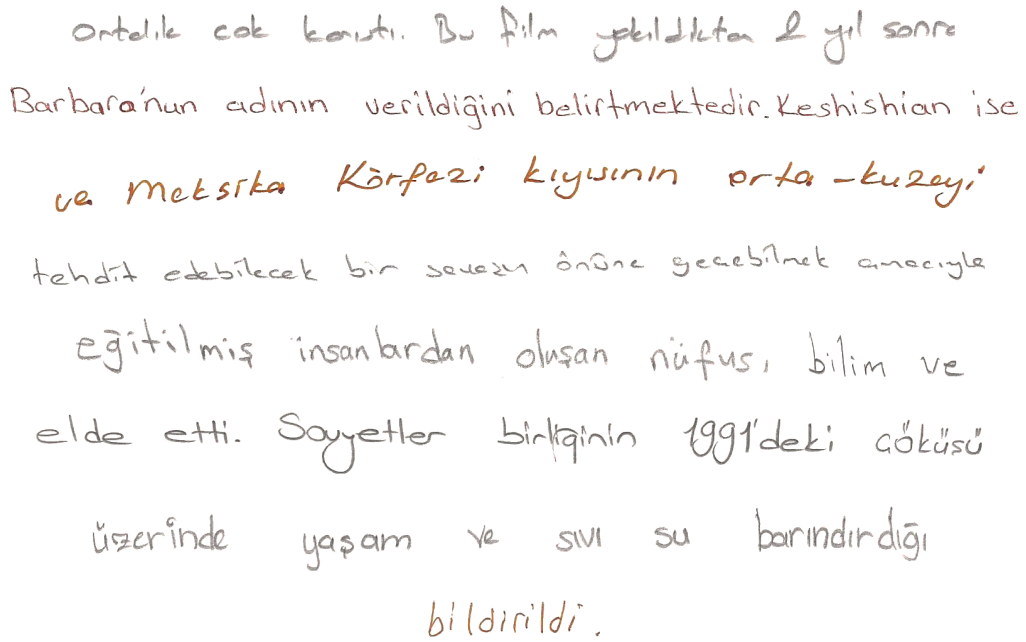 Ortalık cok karıstı. Bu film yakıldıktan 2 yıl sonra
Barbara'nun adının verildiğini belirtmektedir. Keshishian ise
ve Meksika Körfezi kıyısının orta-kuzeyi
tehdit edebilecek bir savasın önüne gecebilmek amacıyla
eğitilmiş insanlardan oluşan nüfus, bilim ve
elde etti. Sovyetler birliginin 1991'deki cöküsü
üzerinde yaşam ve sıvı su barındırdığı
bildirildi.